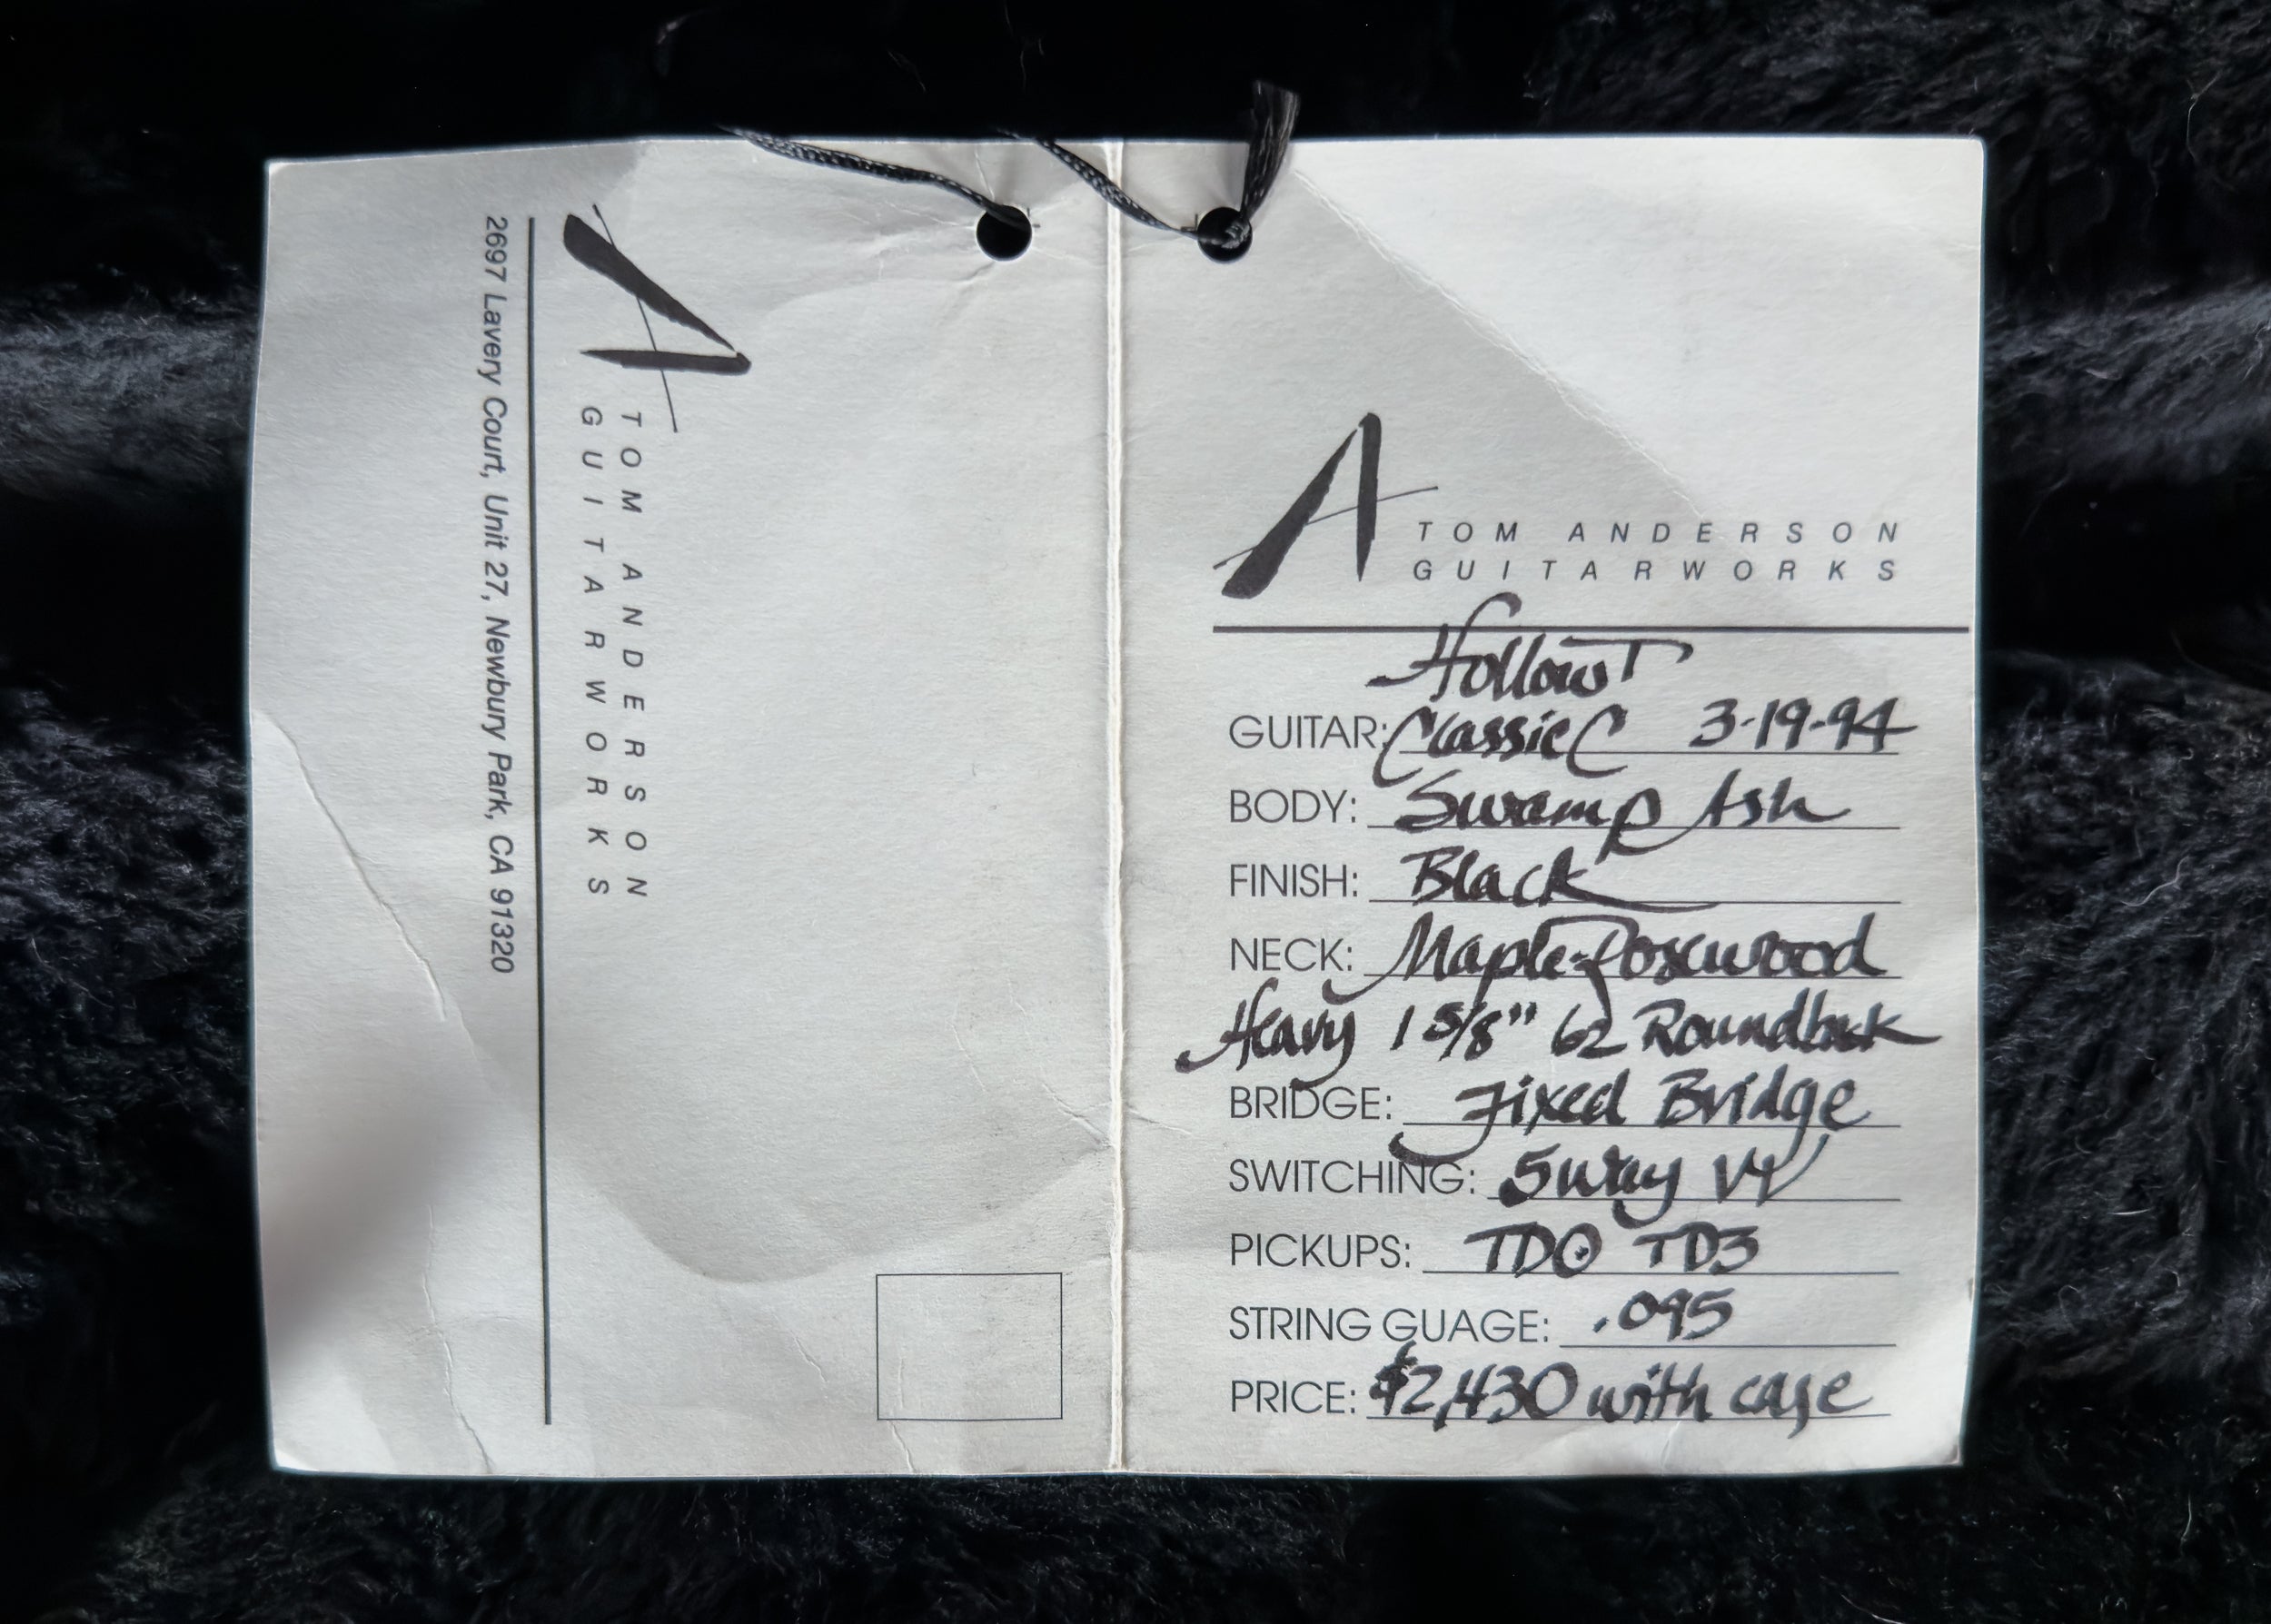 2697 Lavery Court, Unit 27, Newbury Park, CA 91320
TOM ANDERSON
GUITARWORKS
TOM ANDERSON
GUITARWORKS
Hollow T
GUITAR: Classic C 3-19-94
BODY: Swamp Ash
FINISH: Black
NECK: Maple-Rosewood
Heavy 1 5/8" 62 Roundback
BRIDGE: Fixed Bridge
SWITCHING: 5way
PICKUPS: TD0 TD3
STRING GUAGE: .095
PRICE: $2,430 with case